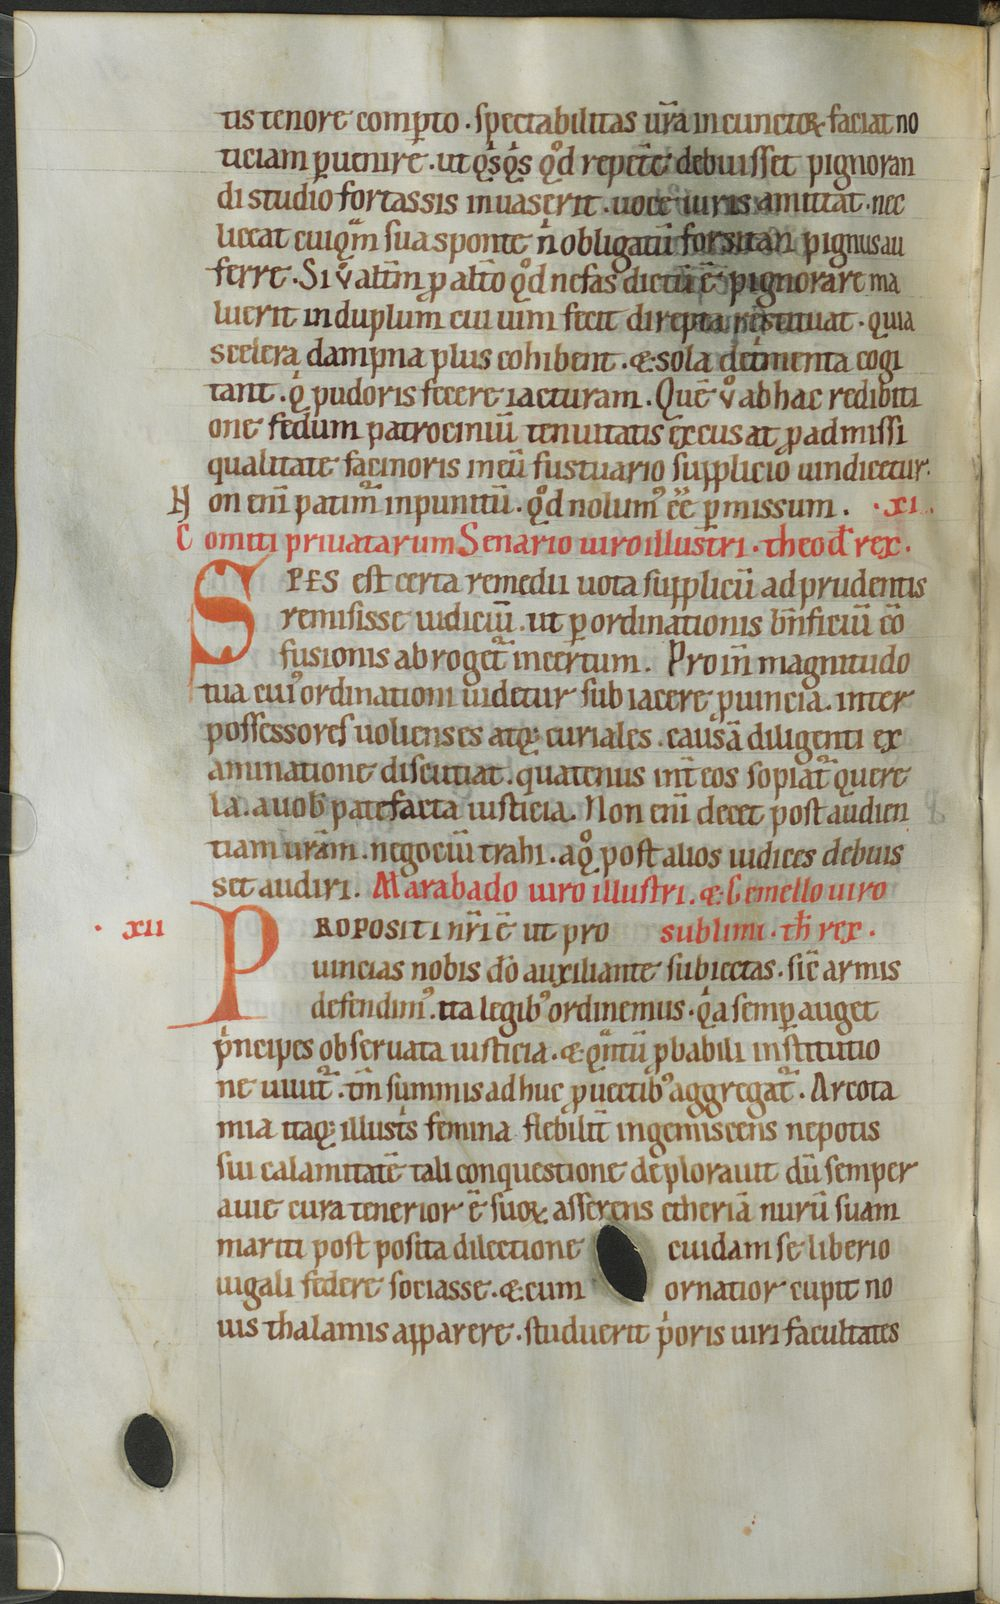 tis tenore comꝑto . spectabilitas ur̄a in cunctoꝝ faciat no
ticiam ꝑuenire . ut qͥsqͥs qͦd repetere debuisset pignoran
di studio fortassis inuaserit . uoce iuris amittat . nec
liceat cuiqᵃm sua sponte n̄ obligatū forsitan pignus au
ferre . Si ūͦ altm̄ ꝓ altō qͦd nefas dictu ē pignorare ma
luerit in duplum cui uim fecit direpta restituat . quia
scelera dampna plus cohibent . & sola detrimenta cogi
tant . qͥ pudoris fecere iacturam . Quē ūͦ ab hac redibiti
one fedum patrociniū tenuitatis excusat ꝓ admissi
qualitate facinoris in eū fustuario supplicio uindicetur .
Non eni patimͬ inpunitū . qͦd nolumꝰ eē ꝑmissum . . xi .
Comiti priuatarum Senario uiro illustri . theod̄ rex .
SPES est certa remedii uota supplicū ad prudentis
remisisse iudiciū . ut ꝑ ordinationis bn̄ficiū cō
fusionis abrogetͬ incertum . Proin̄ magnitudo
tua cuiꝰ ordinationi uidetur subiacere ꝓuincia . inter
possessores uolienses atq; curiales . causā diligenti ex
aminatione discutiat . quatenus int̄ eos sopiatͬ quere
la . a uob̄ patefacta iusticia . Non eni decet post audien
tiam ur̄am . negociū trahi . a qͦ post alios iudices debuis
set audiri . Marabado uiro illustri . & Gemello uiro
. xii PROPOSITI nr̄i ē ut pro sublimi . th̄ rex .
uincias nobis dō auxiliante subiectas . sic̄ armis
defendimꝰ . ita legibꝰ ordinemus . qͥa semꝑ auget
pͥncipes obseruata iusticia . & qᵃntū ꝓbabili institutio
ne uiuitͬ . tm̄ summis adhuc ꝓuectibꝰ aggregatͬ . Arcota
mia itaq; illustͥs femina flebilit̄ ingemiscens nepotis
sui calamitatē tali conquestione deplorauit dū semper
auie cura tenerior ē suoꝝ . asserens etheriā nurū suam
mariti post posita dilectione cuidam se liberio
iugali federe sociasse . & cum ornatior cupit no
uis thalamis apparere . studuerit pͥoris uiri facultates